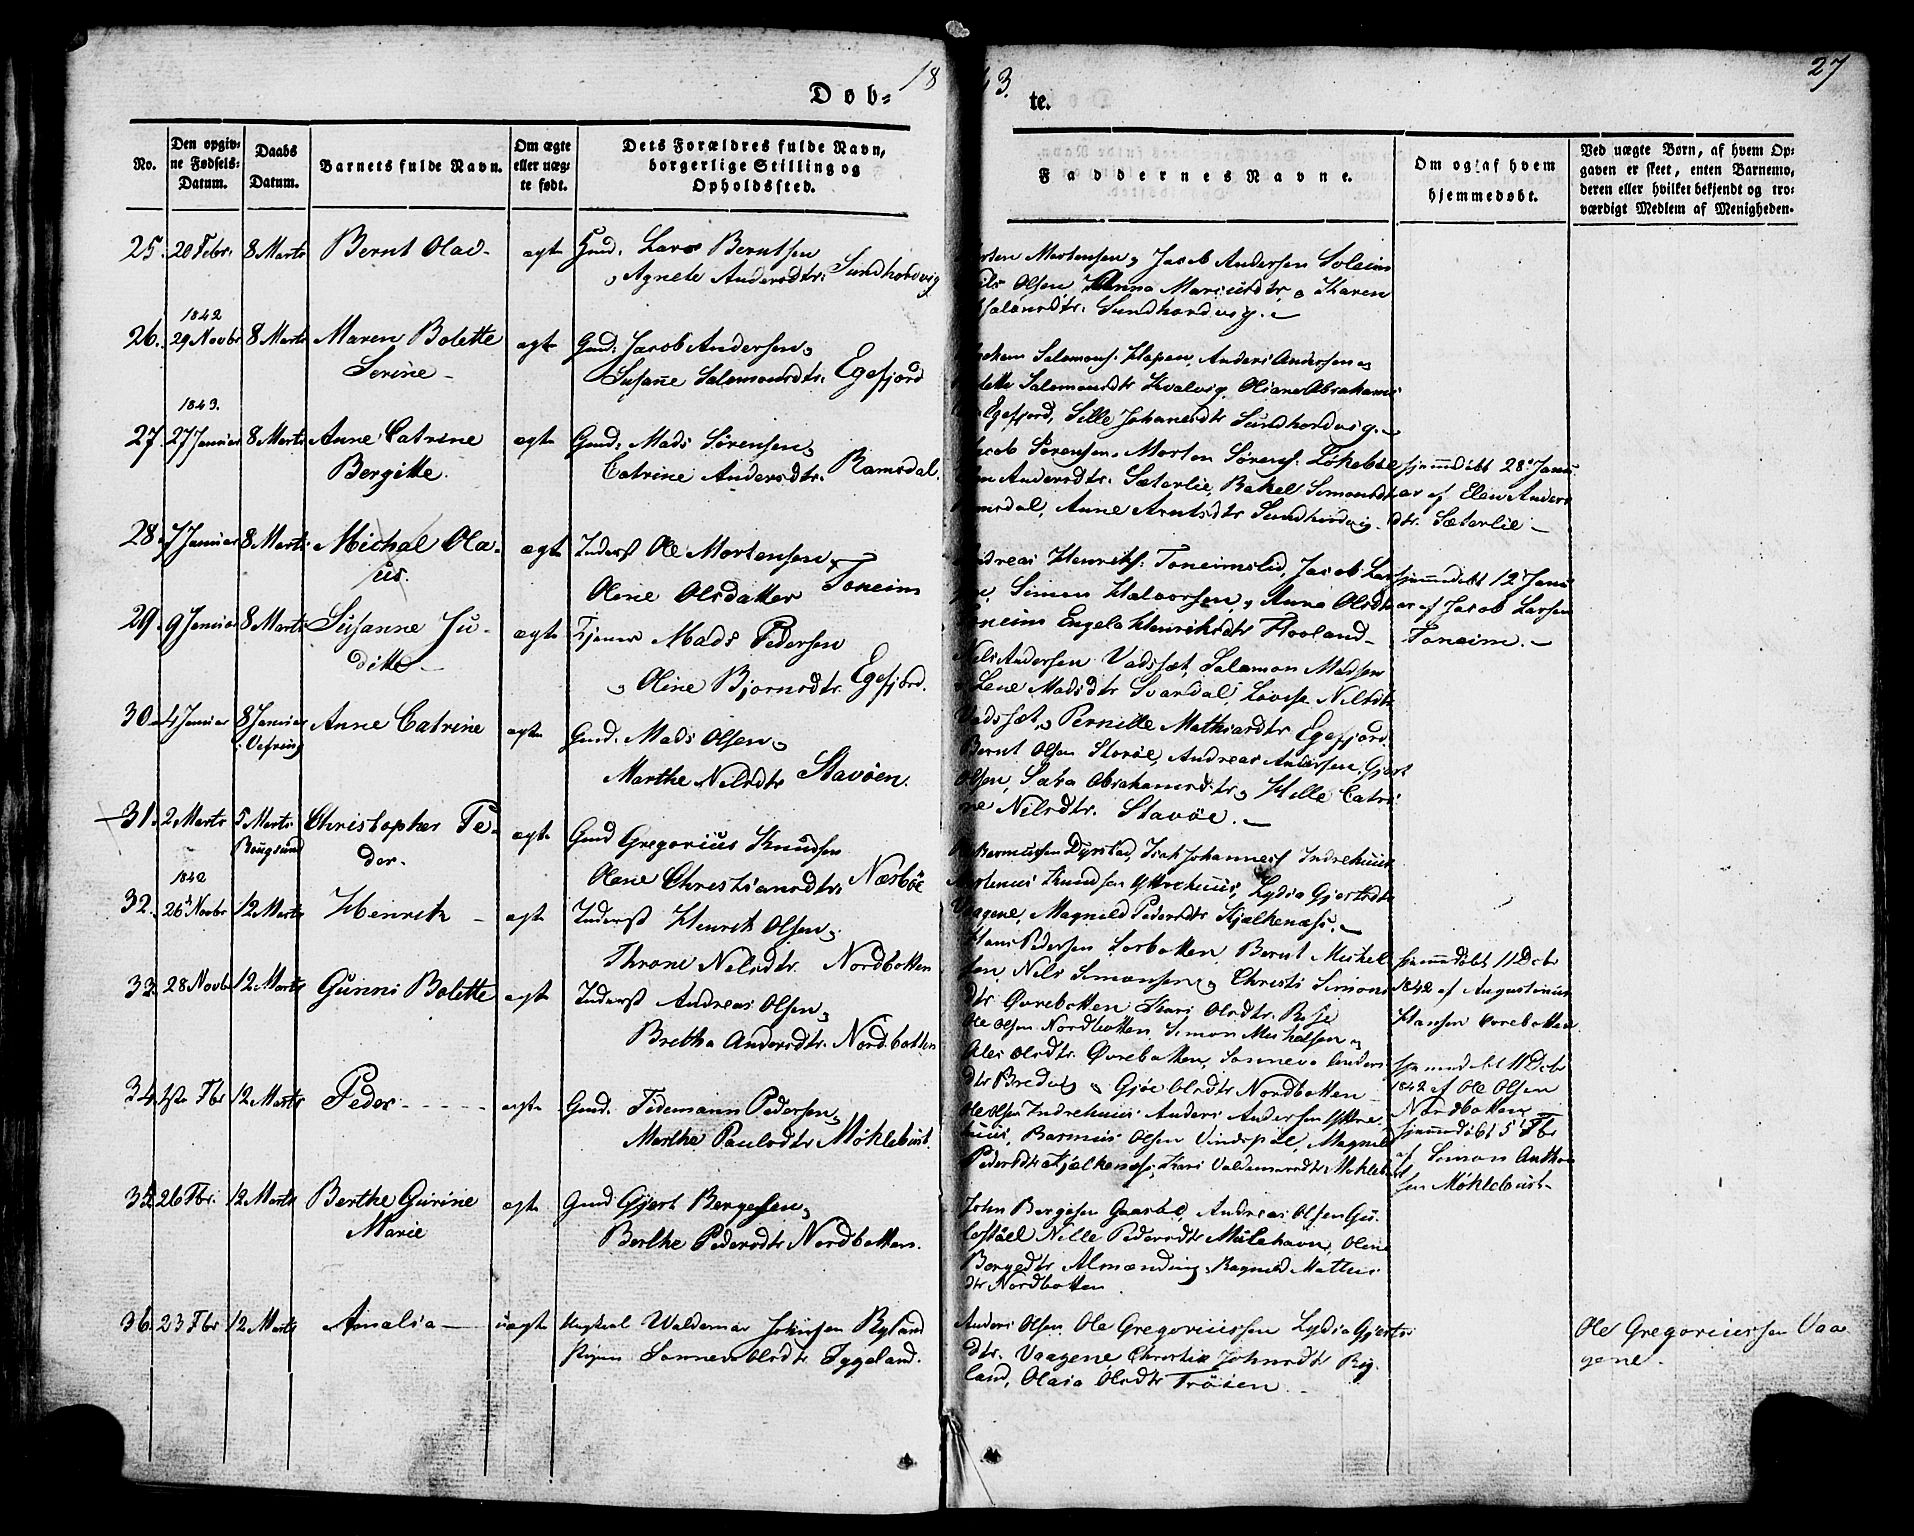 18
43.
27
Dob=
te.
No.
Den opgiv=
ne Fødsels=
Datum.
Daabs
Datum.
Barnets fulde Navn.
Om ægte
eller uæg=
te født.
Dets Forældres fulde Navn,
borgerlige Stilling og
Opholdssted.
Faddernes Navne.
Om og af hvem
hjemmedøbt.
Ved uægte Børn, af hvem Op=
gaven er skeet, enten Barnemo=
deren eller hvilket bekjendt og tro=
værdigt Medlem af Menigheden.
25. 20 Febr. 8 Marts Bernt Olai- ægte Gmd. Lars Berntsen
Agnete Andersdtr. Sundhordvig
Morten Mortensen, Jacob Andersen Soleim
Nils Olsen, Anna Mariusdtr, Karen
Salomdtr. Sundhordvig.
1842
26. 29 Novbr 8 Marts Maren Bolette ægte Gmd. Jacob Andersen
Serine Susane Salomonsdtr. Egefjord
Salomons. Hapen, Anders Andersen
Salomonsdtr Kvalvig, Oliane Abrahams
Egefjord, Sille Johansdtr Sundhordvig.
1843.
27. 27 Januar 8 Marts Anne Catrine ægte Gmd. Mads Sørensen
Bergitte. Catrine Andersdtr. Ramsdal.
Jacob Sørensen, Morten Sørens. Løkeboe
Andersdtr. Sæterlie, Rakel Simonsdtr
Ramsdal, Anne Arntsdtr Sundhordvig.
hjemmedøbt 28 Janu
ar af Elen Anders
dtr. Sæterlie
28. 7 Januar 8 Marts Michal Ola- ægte Inderst Ole Mortensen
us. Oline Olsdatter Toneim
Andreas Henriks. Toneimslid, Jacob Lar
sen, Simen Halvorsen, Anna Olsdtr
Toneim Engela Henriksdtr Floland
hjemmedøbt 12 Janu
ar af Jacob Larsen
Toneim.
29. 9 Januar 8 Marts Susanne Ju- ægte Tjener Mads Pedersen
ditte Oline Bjørnsdtr. Egefjord.
Nils Andersen Vadsset, Salamon Madsen
Lene Madsdtr Svardal, Lovise Nilsdtr
Vadsset, Pernille Mathiasdtr Egefjord.
30. 4 Januar 8 Januar Anne Catrine ægte Gmd. Mads Olsen
i Vefring Marthe Nilsdtr Stavøen.
Bernt Olsen Storøe, Andreas Andersen, Gjert
Olsen, Sara Abrahamsdtr, Hille Catri
ne Nilsdtr. Stavøe.
31. 2 Marts 5 Marts Christopher Pe- ægte Gmd Gregorius Knudsen
Bougsund der. Olene Christiansdtr. Næsbøe
Rasmussen Dyrstad, Isak Johannes Indrehuus
Martenus Knudsen Yttrehuus, Lydia Gjertsdtr
Vaagene, Magnild Pedersdtr Hjælkenæs.
1842
32. 26 Novbr 12 Marts Henrik ægte Inderst Henrik Olsen
Throne Nilsdtr. Nordbotten
Hans Pedersen Lorbotten, Bernt Mickel
sen, Nils Simonsen, Christi Simons
dtr Øvrebotten, Kari Olsdtr. Rise
hjemmedøbt 11 Decbr
1842 af Augustinus
Hansen Øvrebotten
33. 28 Novb 12 Marts Gunni Bolette ægte Inderst Andreas Olsen
Bretha Andersdtr. Nordbotten
Ole Olsen Nordbotten, Simon Mickelsen
Ales Olsdtr. Øvrebotten, Sonneva Anders
dtr Bredvig, Gjøe Olsdtr Nordbotten
hjemmedøbt 11 Decbr
1842 af Ole Olsen
Nordbotten
34. 1ste Fbr 12 Marts Peder ægte Gmd. Tidemann Pedersen
Marthe Paulsdtr Møklebust.
Ole Olsen Indrehuus Anders Andersen Yttre
huus, Rasmus Olsen Vindspol, Magnild
Pedersdtr Hjælkenæs, Kari Valdemarsdtr Møklebu
hjemmedøbt 5 Fbr
af Simon Anthon
sen Møklebust
35. 26 Fbr. 12 Marts Berthe Gurine ægte Gmd Gjert Børgesen
Marie Berthe Pedersdtr Nordbotten.
John Børgesen Gaasbø, Andreas Olsen Gu-
Nille Pedersdtr Mulehavn, Oline
Børgedtr Almænding, Ragnild Matties
dtr Nordbotten
36. 23 Fbr 12 Marts Amalia uægte Ungkarl Waldemar Johnsen Rygland
Pigen Sonneva Olsdtr Tygeland.
Anders Olsen, Ole Gregoriussen Lydia Gjerts
dtr. Vaagene, Christie Johnsdtr Ryg-
land, Olava Olsdtr Trøien
Ole Gregoriussen Vaa
gene.